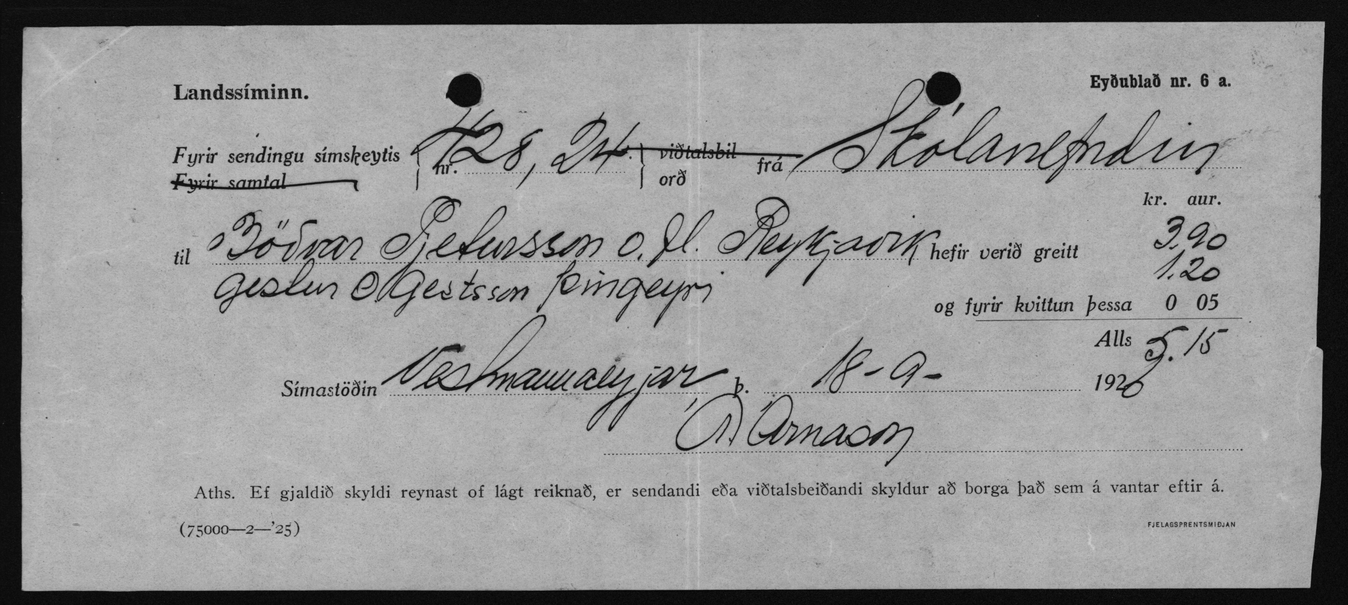 Landssíminn.
Eyðublað nr. 6 a.
Fyrir sendingu símskeytis nr. 428, 24 viðtalsbil frá Skólanefndin
Fyrir samtal orð
kr. aur.
til Böðvar Pjetursson o. fl. Reykjavik hefir verið greitt 3.90
Gestur O Gestsson Þingeyri 1.20
og fyrir kvittun þessa 0 05
Alls 5.15
Símastöðin Vestmannaeyjar þ. 18-9- 1926
Á. Árnason
Aths. Ef gjaldið skyldi reynast of lágt reiknað, er sendandi eða viðtalsbeiðandi skyldur að borga það sem á vantar eftir á.
(75000—2—'25)
FJELAGSPRENTSMIÐJAN